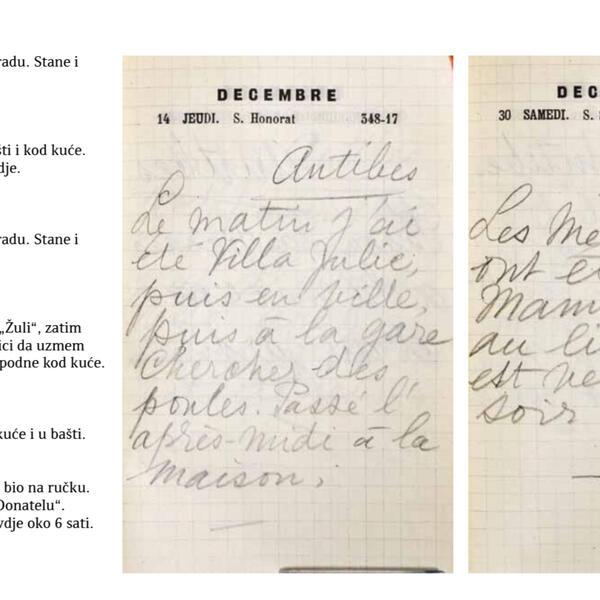 radu. Stane i
šti i kod kuće.
dje.
radu. Stane i
„Žuli“, zatim
ici da uzmem
podne kod kuće.
kuće i u bašti.
bio na ručku.
Donatelu“.
vdje oko 6 sati.
DECEMBRE
14 JEUDI. S. Honorat 348-17
Antibes
Le matin j'ai
été Villa Julie,
puis en ville,
puis à la gare
chercher des
poules. Passé l'
après-midi à la
maison.
DEC
30 SAMEDI. S.
Les Me
ont é
Mam
au li
est ve
soir